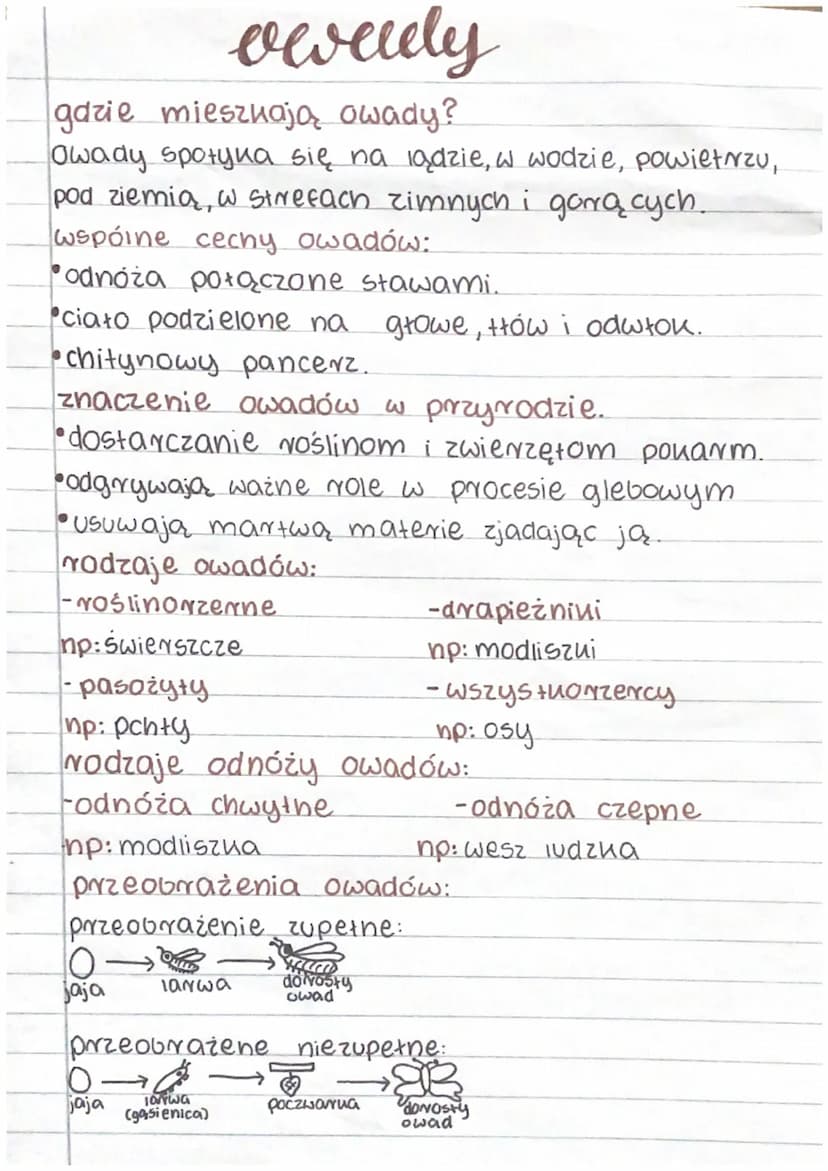 owady
gdzie mieszkają owady?
owady spotyka się na lądzie, w wodzie, powietrzu,
pod ziemią, w strefach zimnych i gorących.
wspólne cechy owadów:
•odnóża połączone stawami.
•ciało podzielone na głowe, tłów i odwłok.
•chitynowy pancerz.
znaczenie owadów w przyrodzie.
•dostarczanie roślinom i zwierzętom pokarm.
•odgrywają ważne role w procesie glebowym
•usuwają martwą materie zjadając ją.
rodzaje owadów:
-roślinorzerne -drapieżniki
np: świerszcze np: modliszki
- pasożyty - wszystkorzercy
np: pchły np: osy
rodzaje odnóży owadów:
-odnóża chwytne -odnóża czepne
np: modliszka np: wesz ludzka
przeobrażenia owadów:
przeobrażenie zupełne:
jaja larwa dorosły
owad
przeobrażene niezupełne:
jaja larwa
(gąsienica) poczwarka dorosły
owad